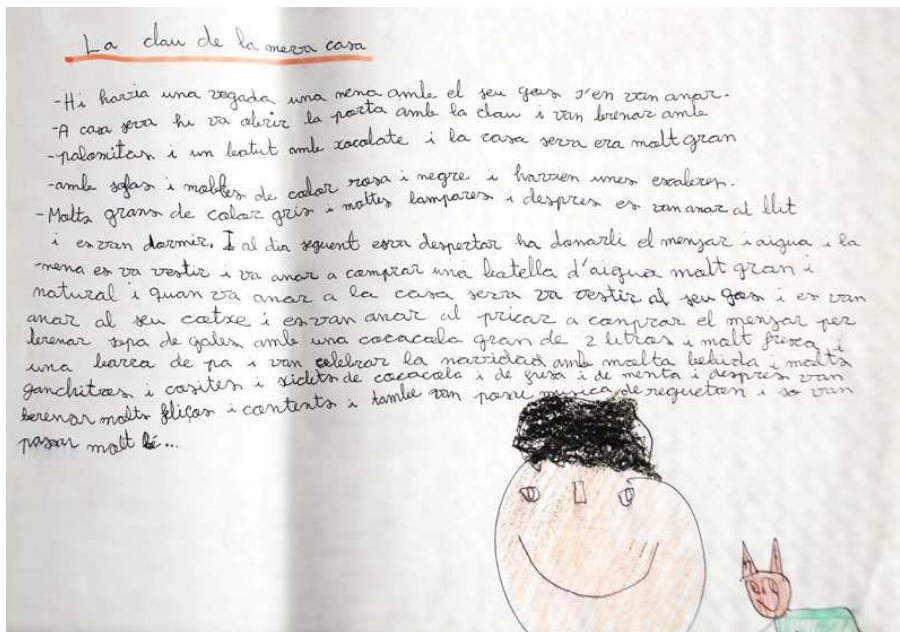 La clau de la meva casa
-Hi havia una vegada una nena amb el seu gos s'en van anar.
-A casa seva hi va abrir la porta amb la clau i van berenar amb
-palomitas i un batut amb xocolate i la casa seva era molt gran
-amb sofas i mobles de color rosa i negre i havien unes escaleres.
-Molts grans de color gris i moltes lampares i despres es van anar al llit
i es van dormir. I al dia seguent es va despertar ha donarli el menjar i aigua i la
-nena es va vestir i va anar a comprar una botella d'aigua molt gran i
natural i quan va anar a la casa seva va vestir al seu gos i es van
anar al seu cotxe i es van anar al pricar a comprar el menjar per
berenar sopa de gales amb una cocacola gran de 2 litros i molt fresca i
una barra de pa i van celebrar la navidad amb molta bebida i molts
ganchitos i cosites i xiclets de cocacola i de fresa i de menta i despres van
berenar molts fliços i contents i tambe van posar musica de regueton i so van
passar molt bé...